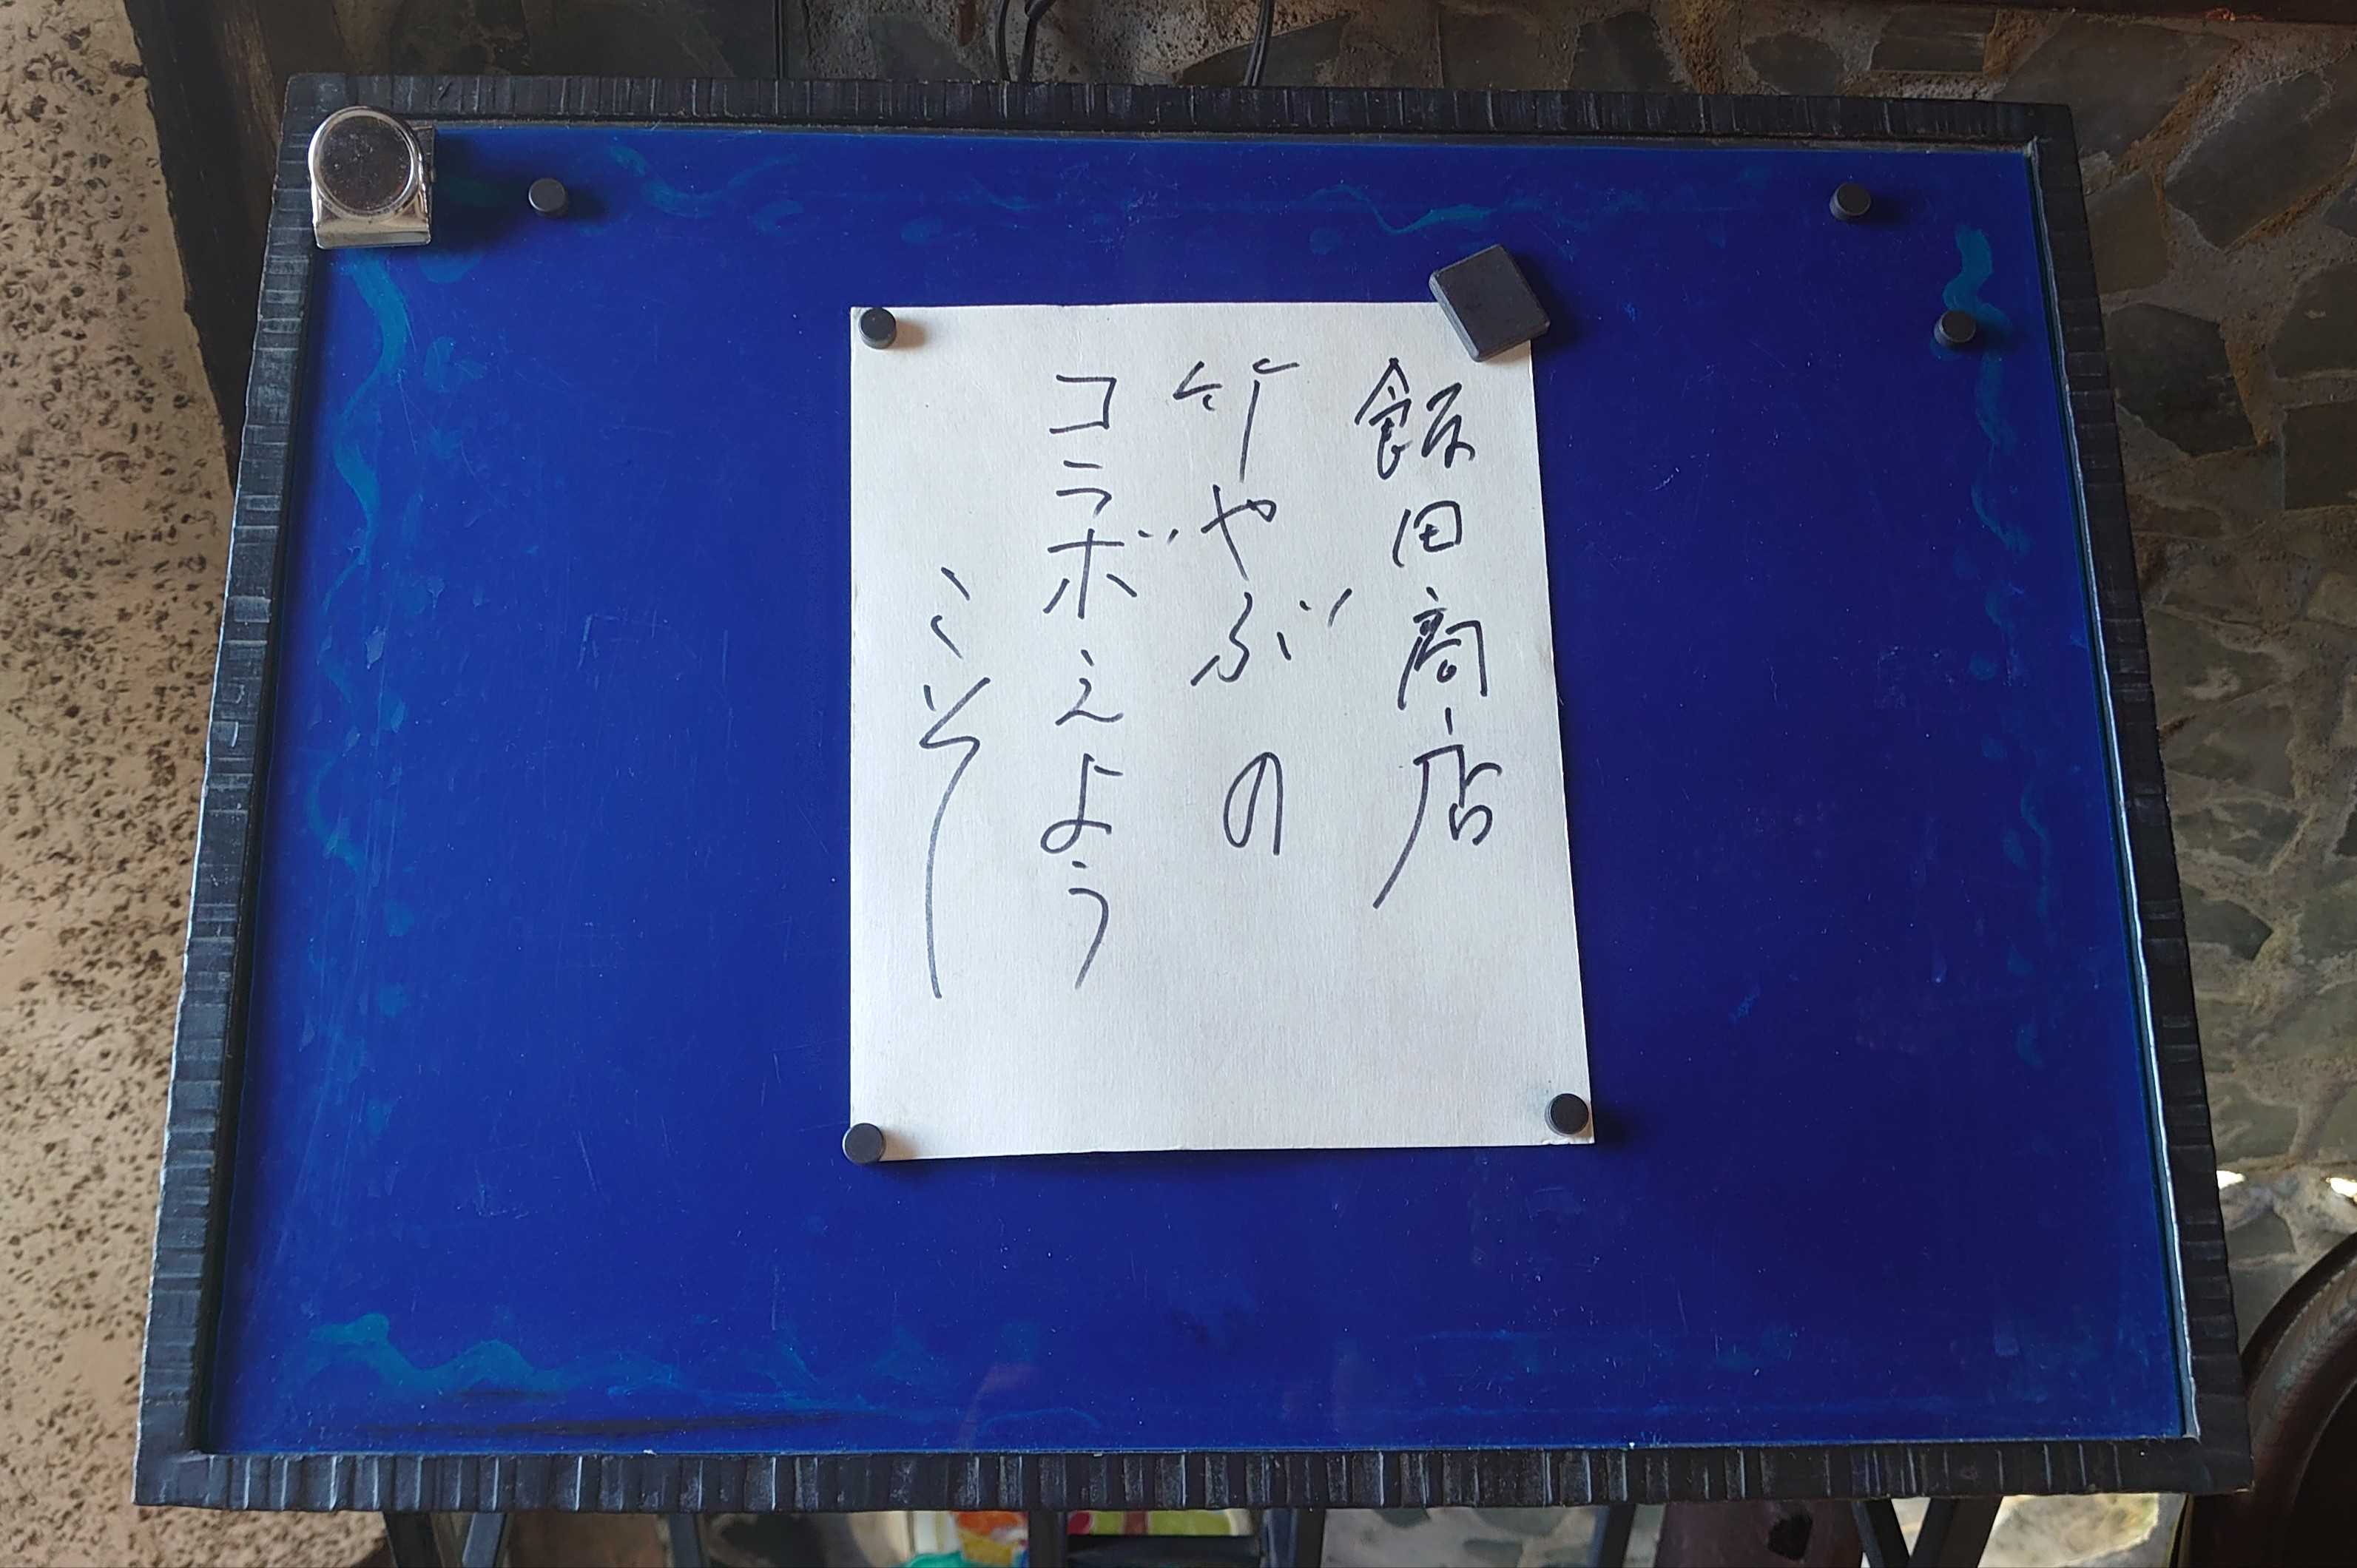 飯田商店
竹やぶの
コラボえよう
こそ